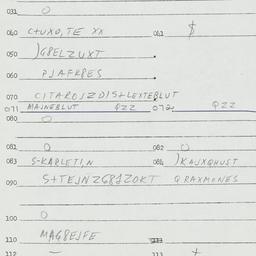 031 O
040 C+UXO,TE XX 041 $
050 )GPELZUXT
060 PJAFRPES
070 CITAROJZDIS+LEXTEBLUT
071 MAJNEBLUT QZZ 072 QZZ
080 O
081 O 082 O
083 S-KARLETIN 084 )KAJXQHUST
090 S+TEJNZGRJZOKT QRAXMONES
100 O
110 MAGREJFE
112 — 113 +